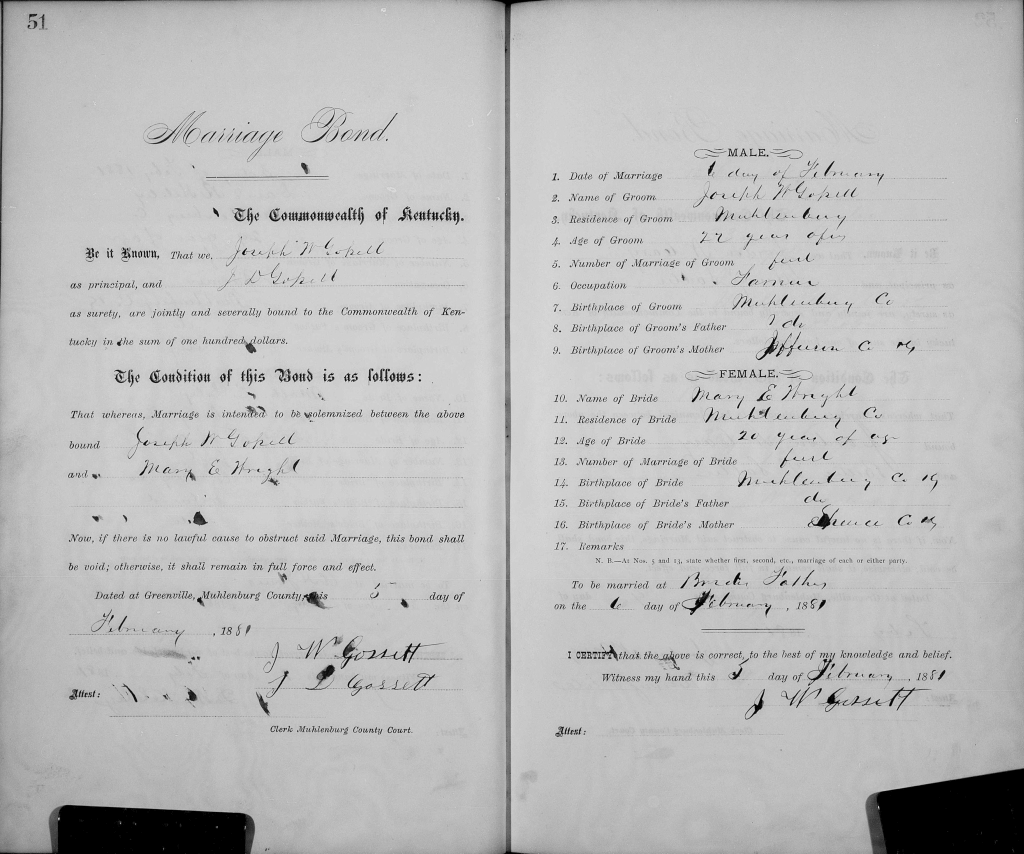 51
Marriage Bond.
The Commonwealth of Kentucky.
Be it Known, That we, Joseph W Gossett
as principal, and J D Gossett
as surety, are jointly and severally bound to the Commonwealth of Ken-
tucky in the sum of one hundred dollars.
The Condition of this Bond is as follows:
That whereas, Marriage is intended to be solemnized between the above
bound Joseph W Gossett
and Mary E Wright
Now, if there is no lawful cause to obstruct said Marriage, this bond shall
be void; otherwise, it shall remain in full force and effect.
Dated at Greenville, Muhlenburg County, this 5 day of
February, 1881
J W Gossett
J D Gossett
Attest:
Clerk Muhlenburg County Court.
MALE.
1. Date of Marriage 6 day of February
2. Name of Groom Joseph W Gossett
3. Residence of Groom Muhlenburg
4. Age of Groom 22 years of
5. Number of Marriage of Groom first
6. Occupation Farmer
7. Birthplace of Groom Muhlenburg Co
8. Birthplace of Groom's Father do
9. Birthplace of Groom's Mother Jefferson Co Ky
FEMALE.
10. Name of Bride Mary E Wright
11. Residence of Bride Muhlenburg Co
12. Age of Bride 20 years of age
13. Number of Marriage of Bride first
14. Birthplace of Bride Muhlenburg Co Ky
15. Birthplace of Bride's Father do
16. Birthplace of Bride's Mother Co Ky
17. Remarks
N. B.—At Nos. 5 and 13, state whether first, second, etc., marriage of each or either party.
To be married at Brides Fathers
on the 6 day of February, 1881
I CERTIFY that the above is correct, to the best of my knowledge and belief.
Witness my hand this 5 day of February, 1881
J W Gossett
Attest: